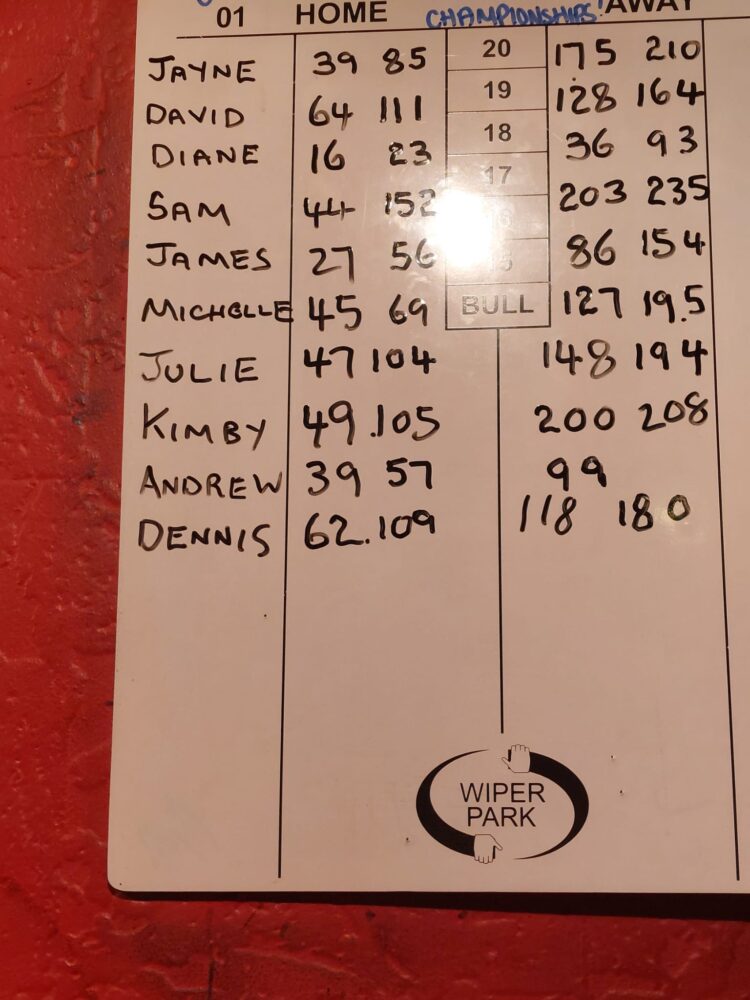 01 HOME CHAMPIONSHIPS! AWAY
JAYNE 39 85 20 175 210
DAVID 64 111 19 128 164
DIANE 16 23 18 36 93
SAM 44 152 17 203 235
JAMES 27 56 86 154
MICHELLE 45 69 BULL 127 19.5
JULIE 47 104 148 194
KIMBY 49.105 200 208
ANDREW 39 57 99
DENNIS 62.109 118 180
WIPER
PARK